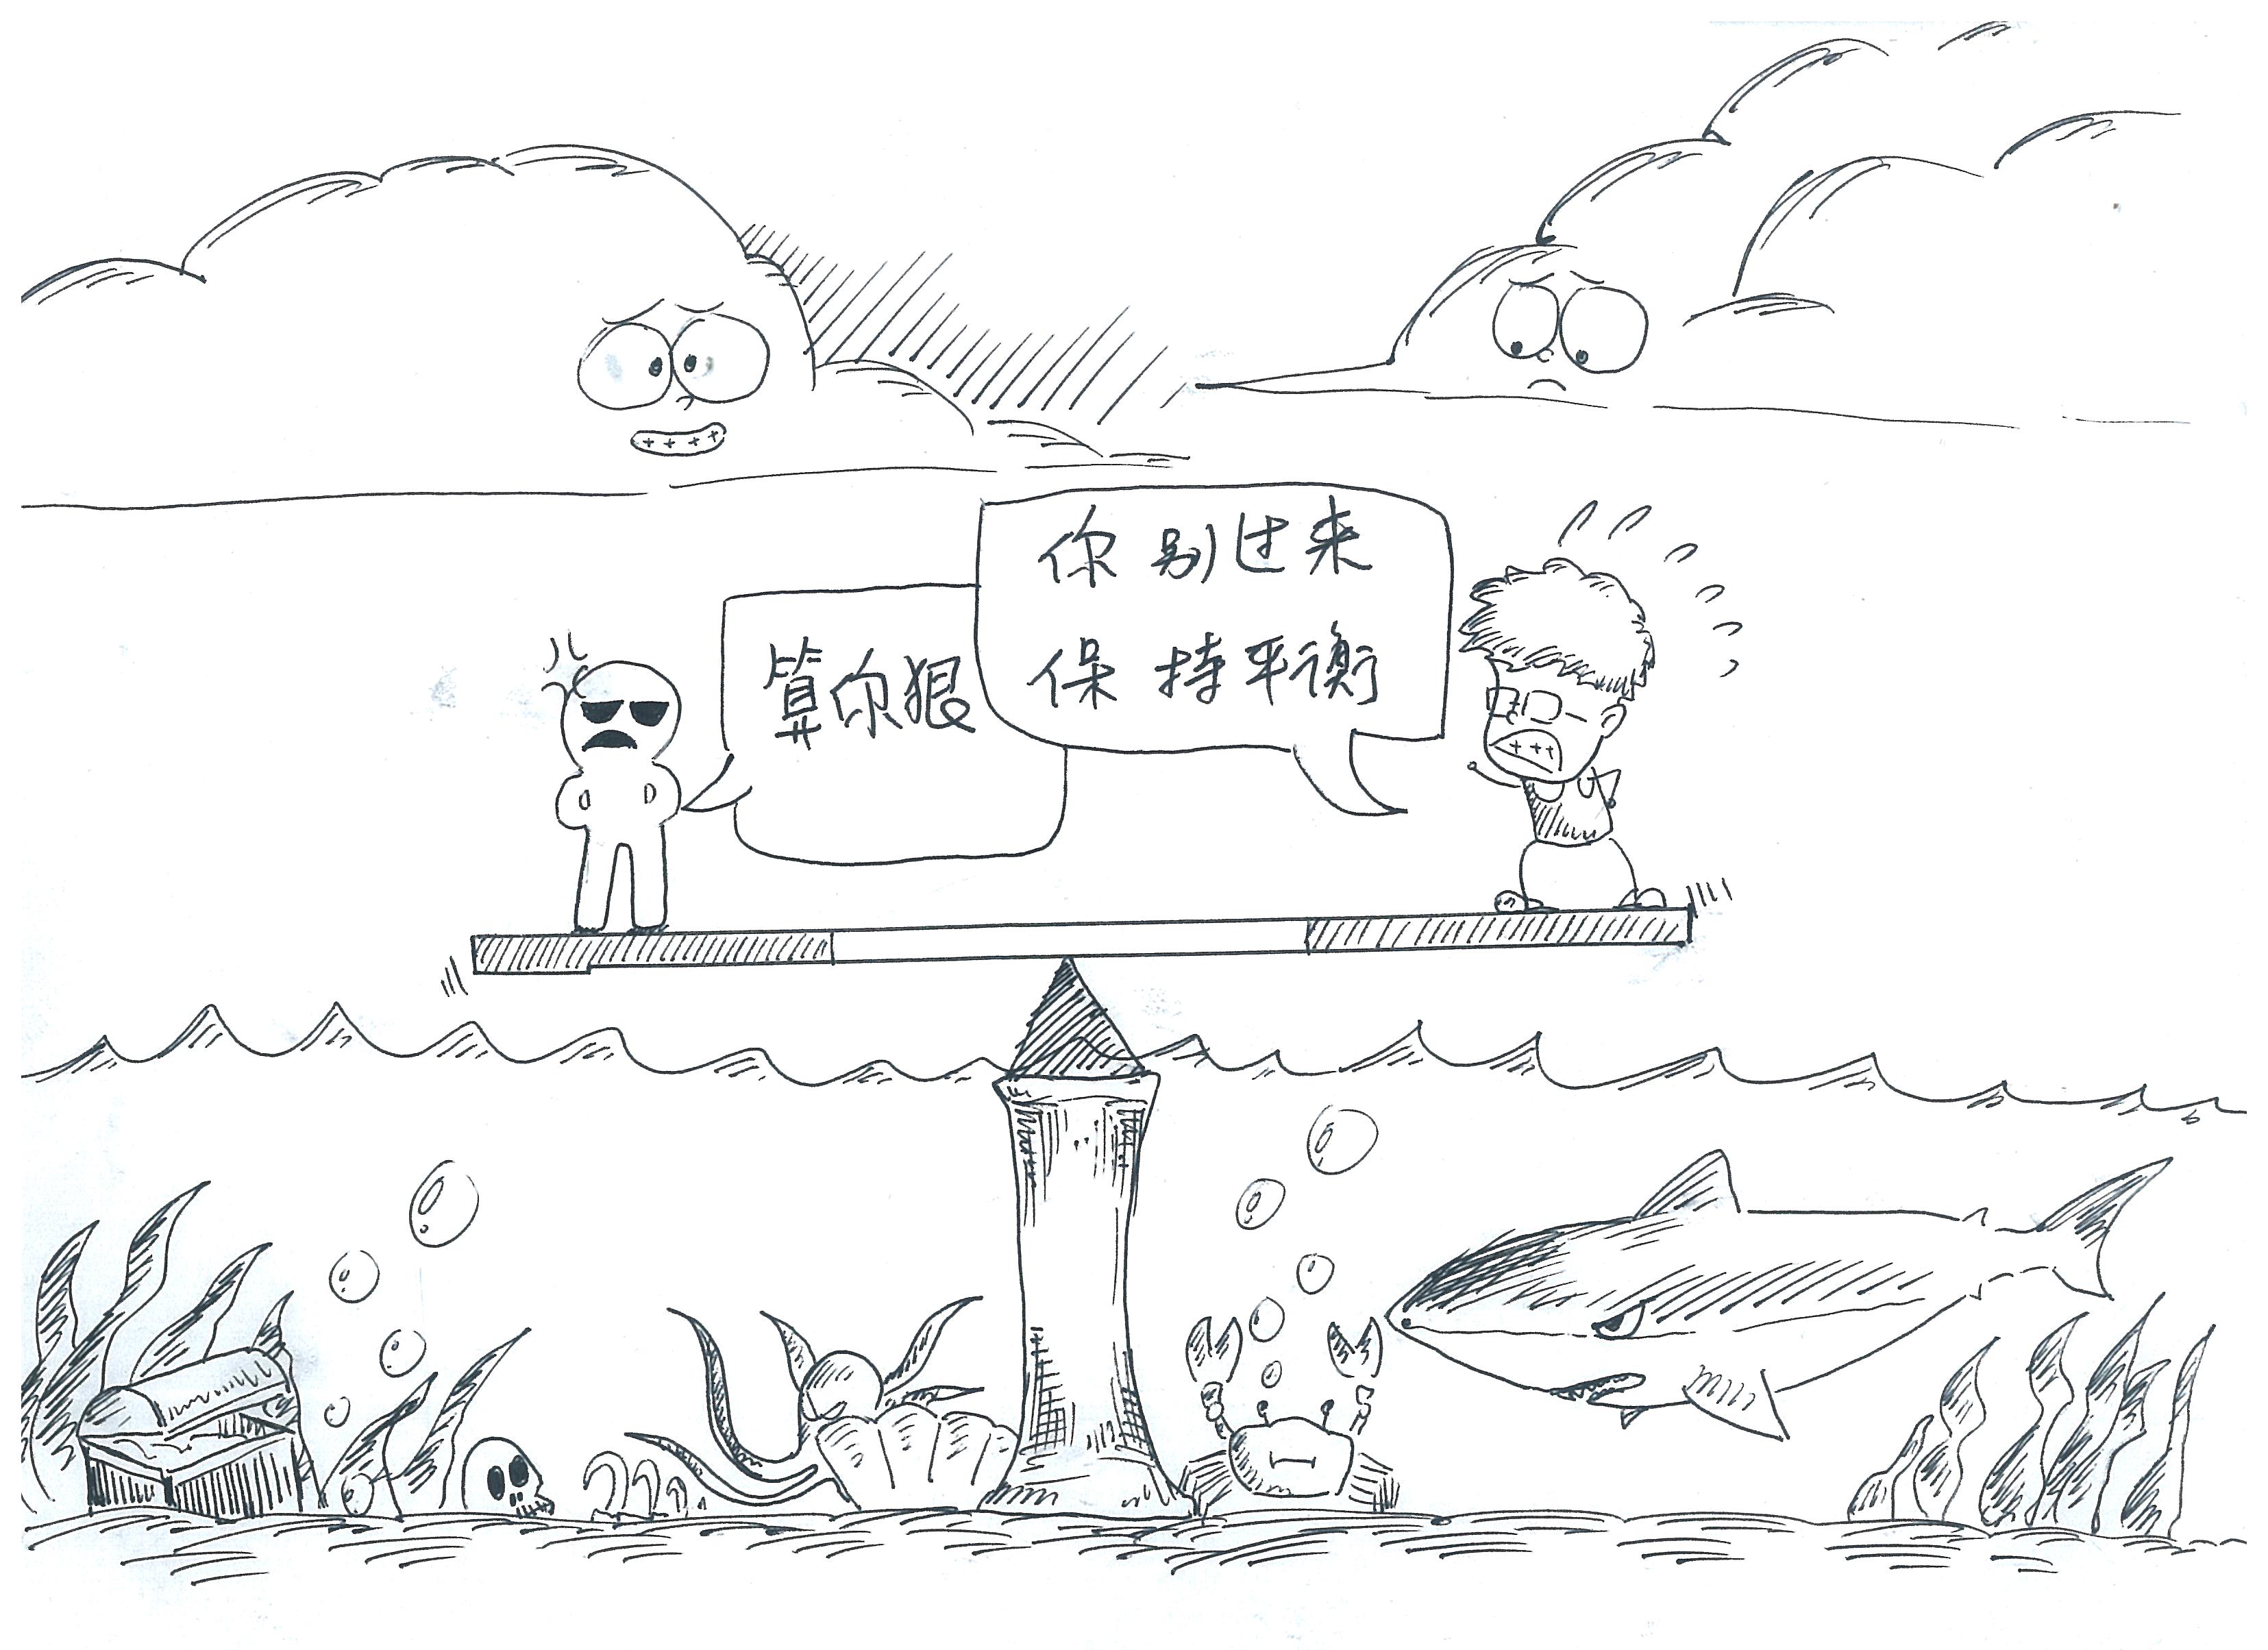 你别过来
保持平衡
算你狠